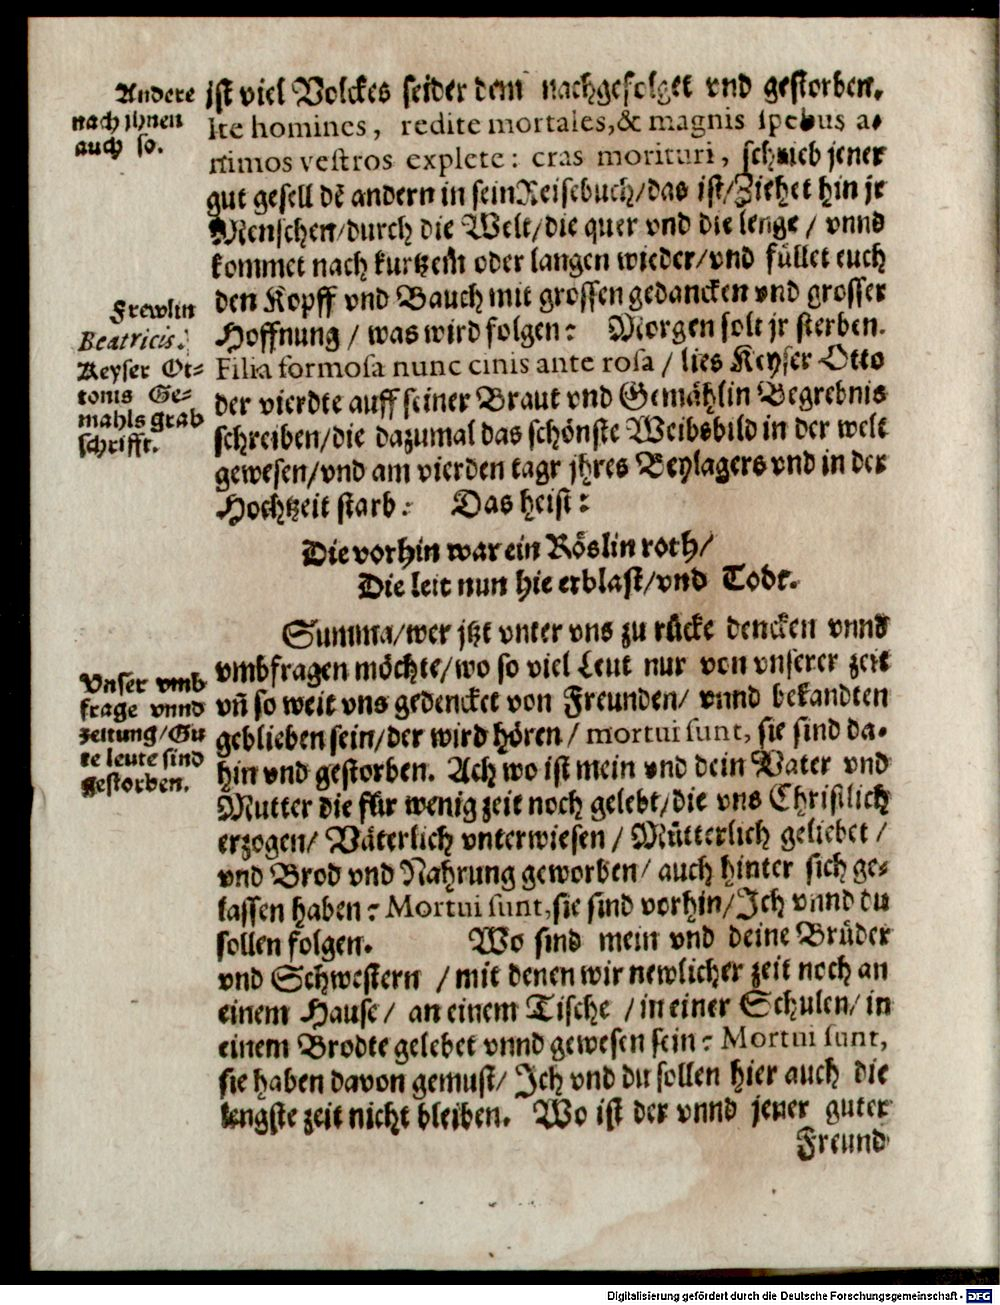 Andere
nach ihnen
auch so.
ist viel Volckes seider dem nachgefolget vnd gestorben.
Ite homines, redite mortales, & magnis spebus a-
nimos vestros explete: cras morituri, schrieb jener
gut gesell dē andern in sein Reisebuch/das ist/Ziehet hin jr
Menschen/durch die Welt/die quer vnd die lenge / vnnd
kommet nach kurtzem oder langen wieder/vnd füllet euch
den Kopff vnd Bauch mit grossen gedancken vnd grosser
Hoffnung / was wird folgen: Morgen solt jr sterben.
Frewlin
Beatricis.
Keyser Ot-
tonis Ge-
mahls grab
schrifft.
Filia formosa nunc cinis ante rosa / lies Keyser Otto
der vierdte auff seiner Braut vnd Gemählin Begrebnis
schreiben/die dazumal das schönste Weibsbild in der welt
gewesen/vnd am vierden tage jhres Beylagers vnd in der
Hochtzeit starb: Das heist:
Die vorhin war ein Röslin roth/
Die leit nun hie erblast/vnd Todt.
Summa/wer jtzt vnter vns zu rücke dencken vnnd
vmbfragen möchte/wo so viel Leut nur von vnserer zeit
Vnser vmb
frage vnnd
zeitung/Gu
te leute sind
gestorben.
vñ so weit vns gedencket von Freunden/ vnnd bekandten
geblieben sein/der wird hören / mortui sunt, sie sind da-
hin vnd gestorben. Ach wo ist mein vnd dein Vater vnd
Mutter die für wenig zeit noch gelebt/die vns Christlich
erzogen/ Väterlich vnterwiesen / Mütterlich geliebet /
vnd Brod vnd Nahrung geworben/ auch hinter sich ge-
lassen haben: Mortui sunt, sie sind vorhin/Ich vnnd du
sollen folgen. Wo sind mein vnd deine Brüder
vnd Schwestern / mit denen wir newlicher zeit noch an
einem Hause/ an einem Tische / in einer Schulen/ in
einem Brodte gelebet vnnd gewesen sein: Mortui sunt,
sie haben davon gemust/ Ich vnd du sollen hier auch die
lengste zeit nicht bleiben. Wo ist der vnnd jener guter
Freund
Digitalisierung gefördert durch die Deutsche Forschungsgemeinschaft - DFG